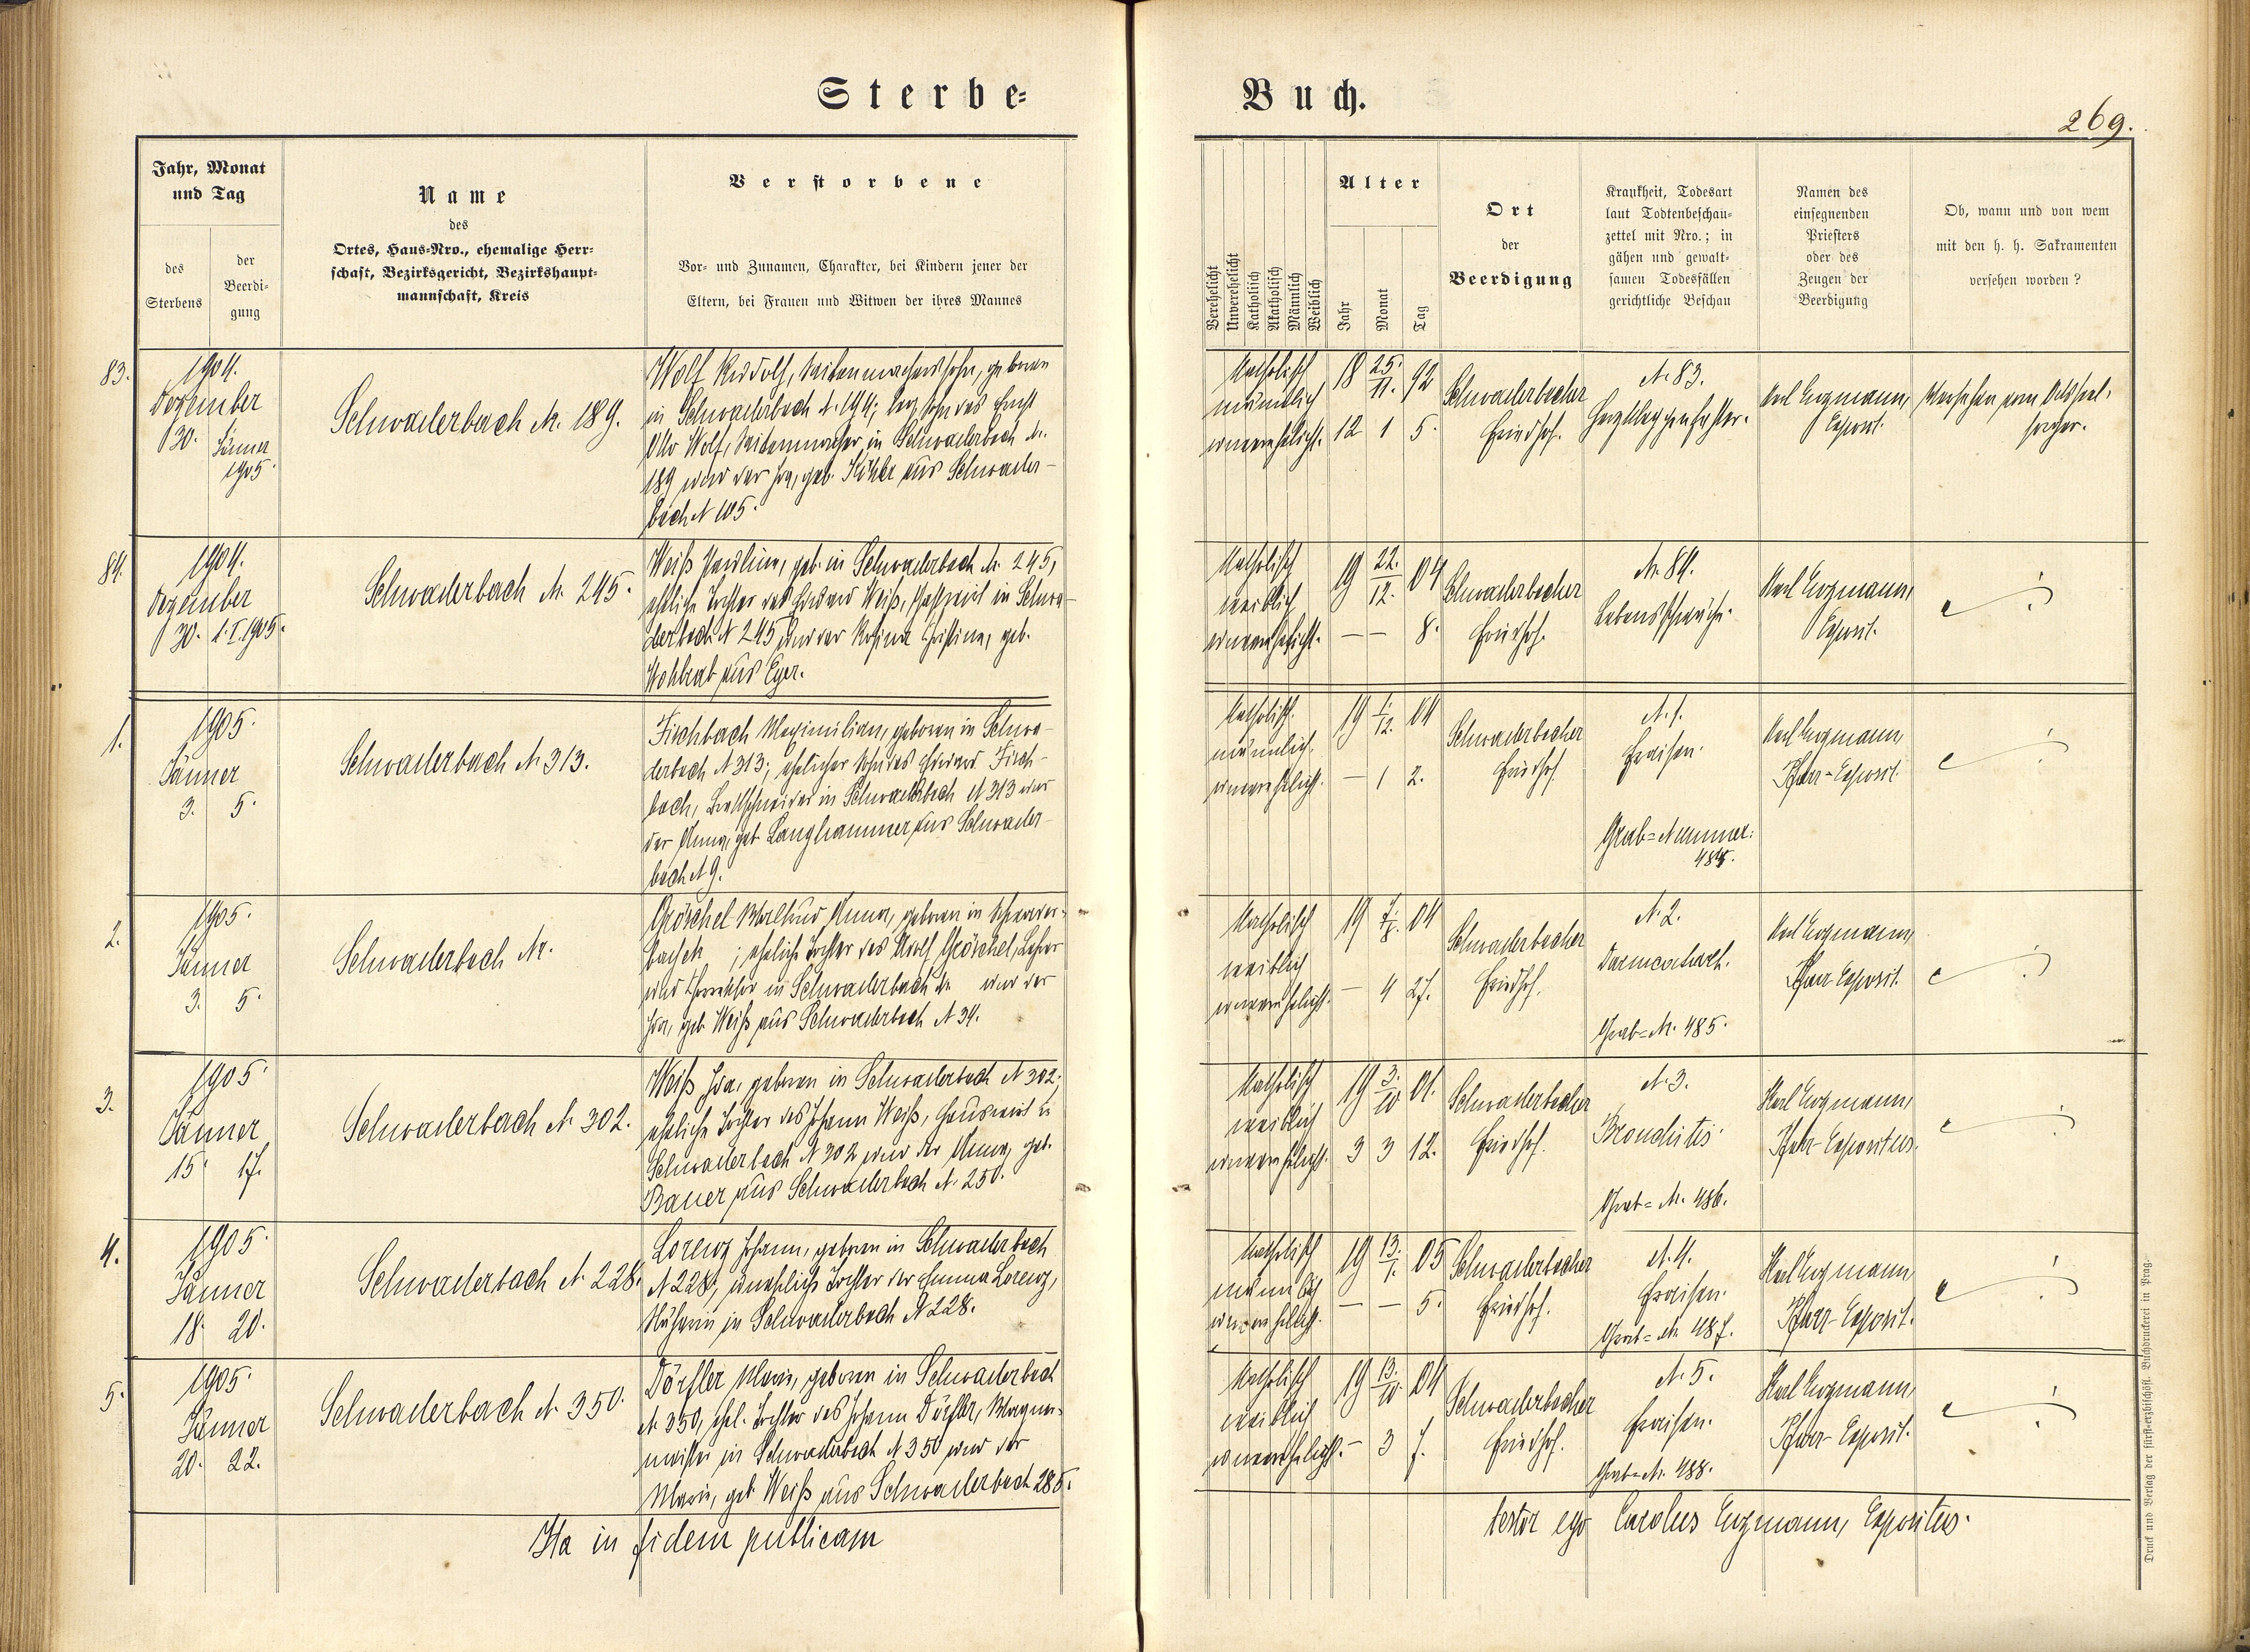 Sterbe-
Buch.
269.
Jahr, Monat
und Tag
des
Sterbens
der
Beerdi-
gung
Name
des
Ortes, Haus-Nro., ehemalige Herr-
schaft, Bezirksgericht, Bezirkshaupt-
mannschaft, Kreis
Verstorbene
Vor- und Zunamen, Charakter, bei Kindern jener der
Eltern, bei Frauen und Witwen der ihres Mannes
Verehelicht
Unverehelicht
Katholisch
Akatholisch
Männlich
Weiblich
Alter
Jahr
Monat
Tag
Ort
der
Beerdigung
Krankheit, Todesart
laut Todtenbeschau-
zettel mit Nro.; in
gähen und gewalt-
samen Todesfällen
gerichtliche Beschau
Namen des
einsegnenden
Priesters
oder des
Zeugen der
Beerdigung
Ob, wann und von wem
mit den h. h. Sakramenten
versehen worden?
83.
1904.
Dezember
30.
Jänner
1905.
Schwaderbach N. 189.
Wolf Rudolf, Saitenmacherssohn, geboren
in Schwaderbach N. 194; Sohn des Ernst
Otto Wolf, Saitenmacher in Schwaderbach N.
189 und der Ida, geb. Köhler aus Schwader-
bach N 105.
katholisch
männlich
unverehelicht.
18 25./11. 92
12 1 5.
Schwaderbacher
Friedhof.
N. 83.
Herzklappenfehler.
Karl Engmann,
Exposit.
Versehen vom Ortsseel-
sorger.
84.
1904.
Dezember
30. 1. I. 1905.
Schwaderbach N. 245.
Weiß Paulina, geb. in Schwaderbach N. 245,
eheliche Tochter des Eduard Weiß, Gastwirt in Schwa-
derbach N 245 und der Rosina Christine, geb.
Wohlrab aus Eger.
katholisch
weiblich
unverehelicht.
19 22./12. 04
— — 8.
Schwaderbacher
Friedhof.
N. 84.
Lebensschwäche.
Karl Engmann,
Exposit.
1.
1905.
Jänner
3. 5.
Schwaderbach N 313.
Fischbach Maximilian, geboren in Schwa-
derbach N 313; ehelicher Sohn des Eduard Fisch-
bach, in Schwaderbach N 313 und
der Anna, geb. Langhammer aus Schwader-
bach N 9.
katholisch.
männlich.
unverehelicht.
19 1./12. 04
— 1 2.
Schwaderbacher
Friedhof
N. 1.
Fraisen.
Grab-Nummer:
Karl Engmann,
Pfarr-Exposit.
2.
1905.
Jänner
3. 5.
Schwaderbach Nr.
Gröschel Waltrud Anna, geboren in Schwader-
bach ; eheliche Tochter des Adolf Gröschel, Lehrer
und in Schwaderbach N. und der
Ida, geb. Weiß aus Schwaderbach N 34.
katholisch
weiblich
unverehelicht.
19 7./8. 04
— 4 27.
Schwaderbacher
Friedhof.
N. 2.
Darmcatarrh.
Grab-N. 485.
Karl Engmann,
Pfarr Exposit.
3.
1905.
Jänner
15. 17.
Schwaderbach N. 302.
Weiß Ida, geboren in Schwaderbach N 302;
eheliche Tochter des Johann Weiß, Hauswirt in
Schwaderbach N 302 und der Anna, geb.
Bauer aus Schwaderbach N. 250.
katholisch
weiblich
unverehelicht.
19 3./10 01.
3 3 12.
Schwaderbacher
Friedhof.
N. 3.
Bronchitis.
Grab-N. 486.
Karl Engmann,
Pfarr-Expositus.
4.
1905.
Jänner
18. 20.
Schwaderbach N. 228.
Lorenz Johann, geboren in Schwaderbach
N 228, uneheliche Tochter der Emma Lorenz,
Näherin in Schwaderbach N 228.
katholisch
männlich
unverehelicht.
19 13./1. 05
— — 5.
Schwaderbacher
Friedhof.
N. 4.
Fraisen.
Grab-N. 487.
Karl Engmann,
Pfarr-Exposit.
5.
1905.
Jänner
20. 22.
Schwaderbach N. 350.
Dörfler Marie, geboren in Schwaderbach
N. 350, ehel. Tochter des Johann Dörfler, Wagner-
meister in Schwaderbach N 350 und der
Marie, geb. Weiß aus Schwaderbach 285.
katholisch
weiblich
unverehelicht.
19 13./10. 04
— 3 7.
Schwaderbacher
Friedhof.
N. 5.
Fraisen.
Grab-N. 488.
Karl Engmann,
Pfarr-Exposit.
Ita in fidem publicam
testor ego Carolus Engmann, Expositus.
Druck und Verlag der fürst-erzbischöfl. Buchdruckerei in Prag.